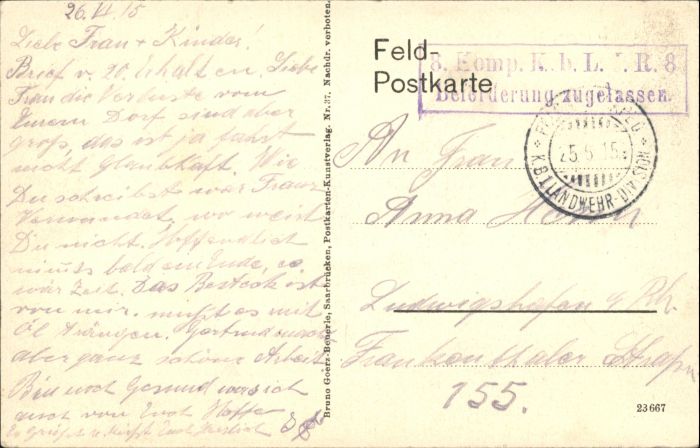 26.VI.15
Liebe Frau + Kinder!
Brief v. 20. Erhalten. Liebe
Frau die Verluste vom
Eurem Dorf sind aber
groß, das ist ja fahst
nicht Glaubhaft. Wie
Du schreibst war Franz
Verwundet, wo weist
Du nicht, Hoffendlich
nimts bald ein Ende, es
wär Zeit. Das Besteck ist
von mir. must es mit
Öl
aber ganz schöne Arbeit
Bin noch Gesund was ich
auch von Euch Hoffe
Es Grüßt u. Küßt Euch Herzlich
Bruno Goerz-Beuerle, Saarbrücken, Postkarten-Kunstverlag. Nr. 37. Nachdr. verboten.
Feld-
Postkarte
8. Komp. K. b. L. I. R. 8
Beförderung zugelassen.
25.5.15
K.B.1.LANDWEHR-DIVISION
An Frau
Anna
Ludwigshafen a/Rh.
Frankenthaler Straße
155.
23667